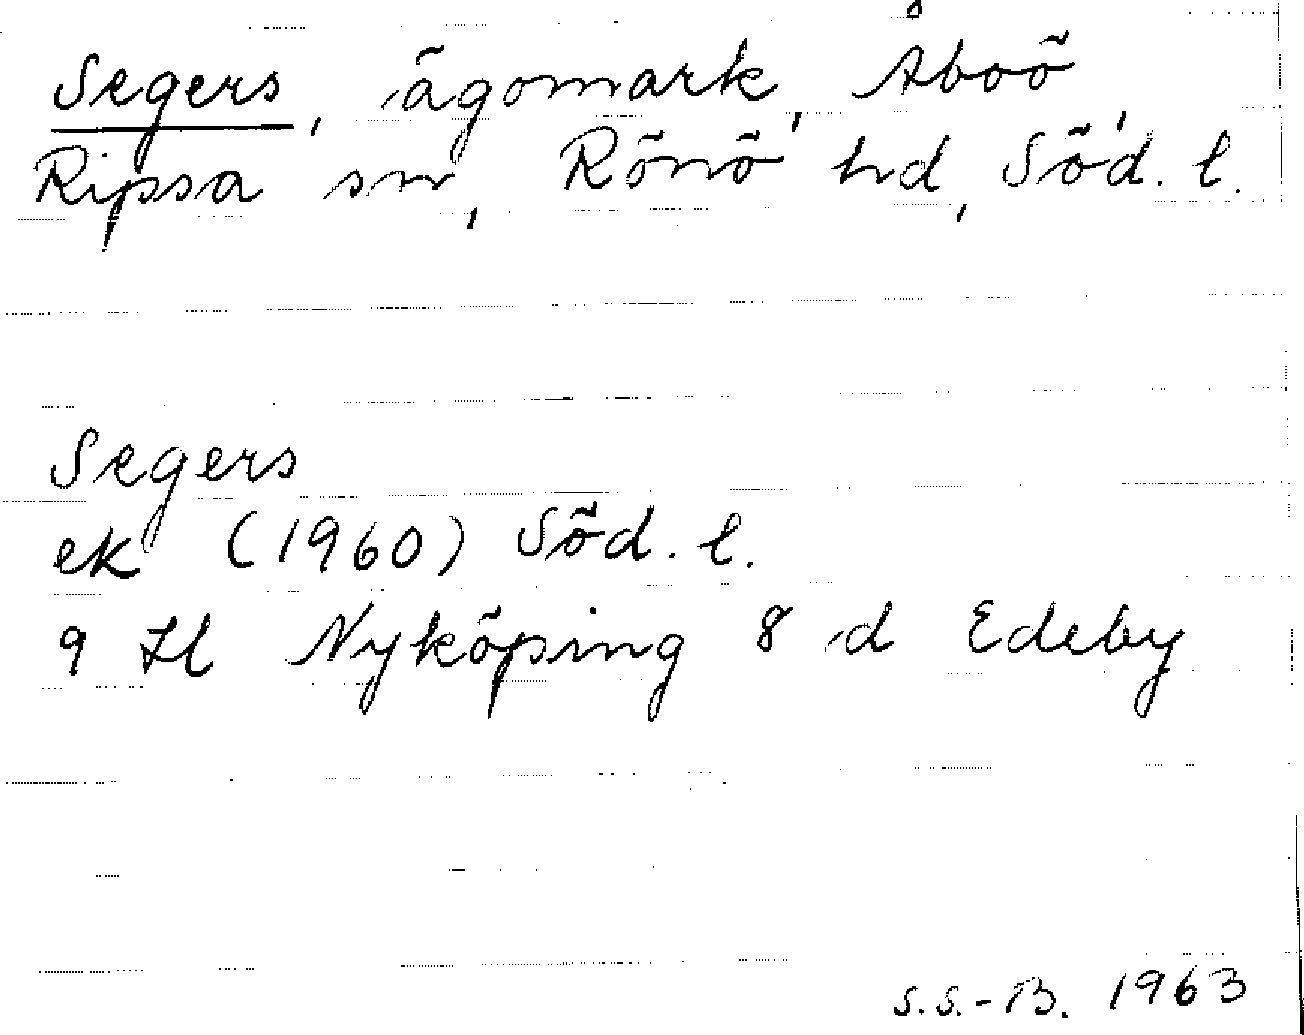 Segers, ägomark, Åboö,
Ripsa sn, Rönö hd, Söd. l.
Segers
ek (1960) Söd. l.
9 H Nyköping 8 d Edeby
S.S.-B. 1963